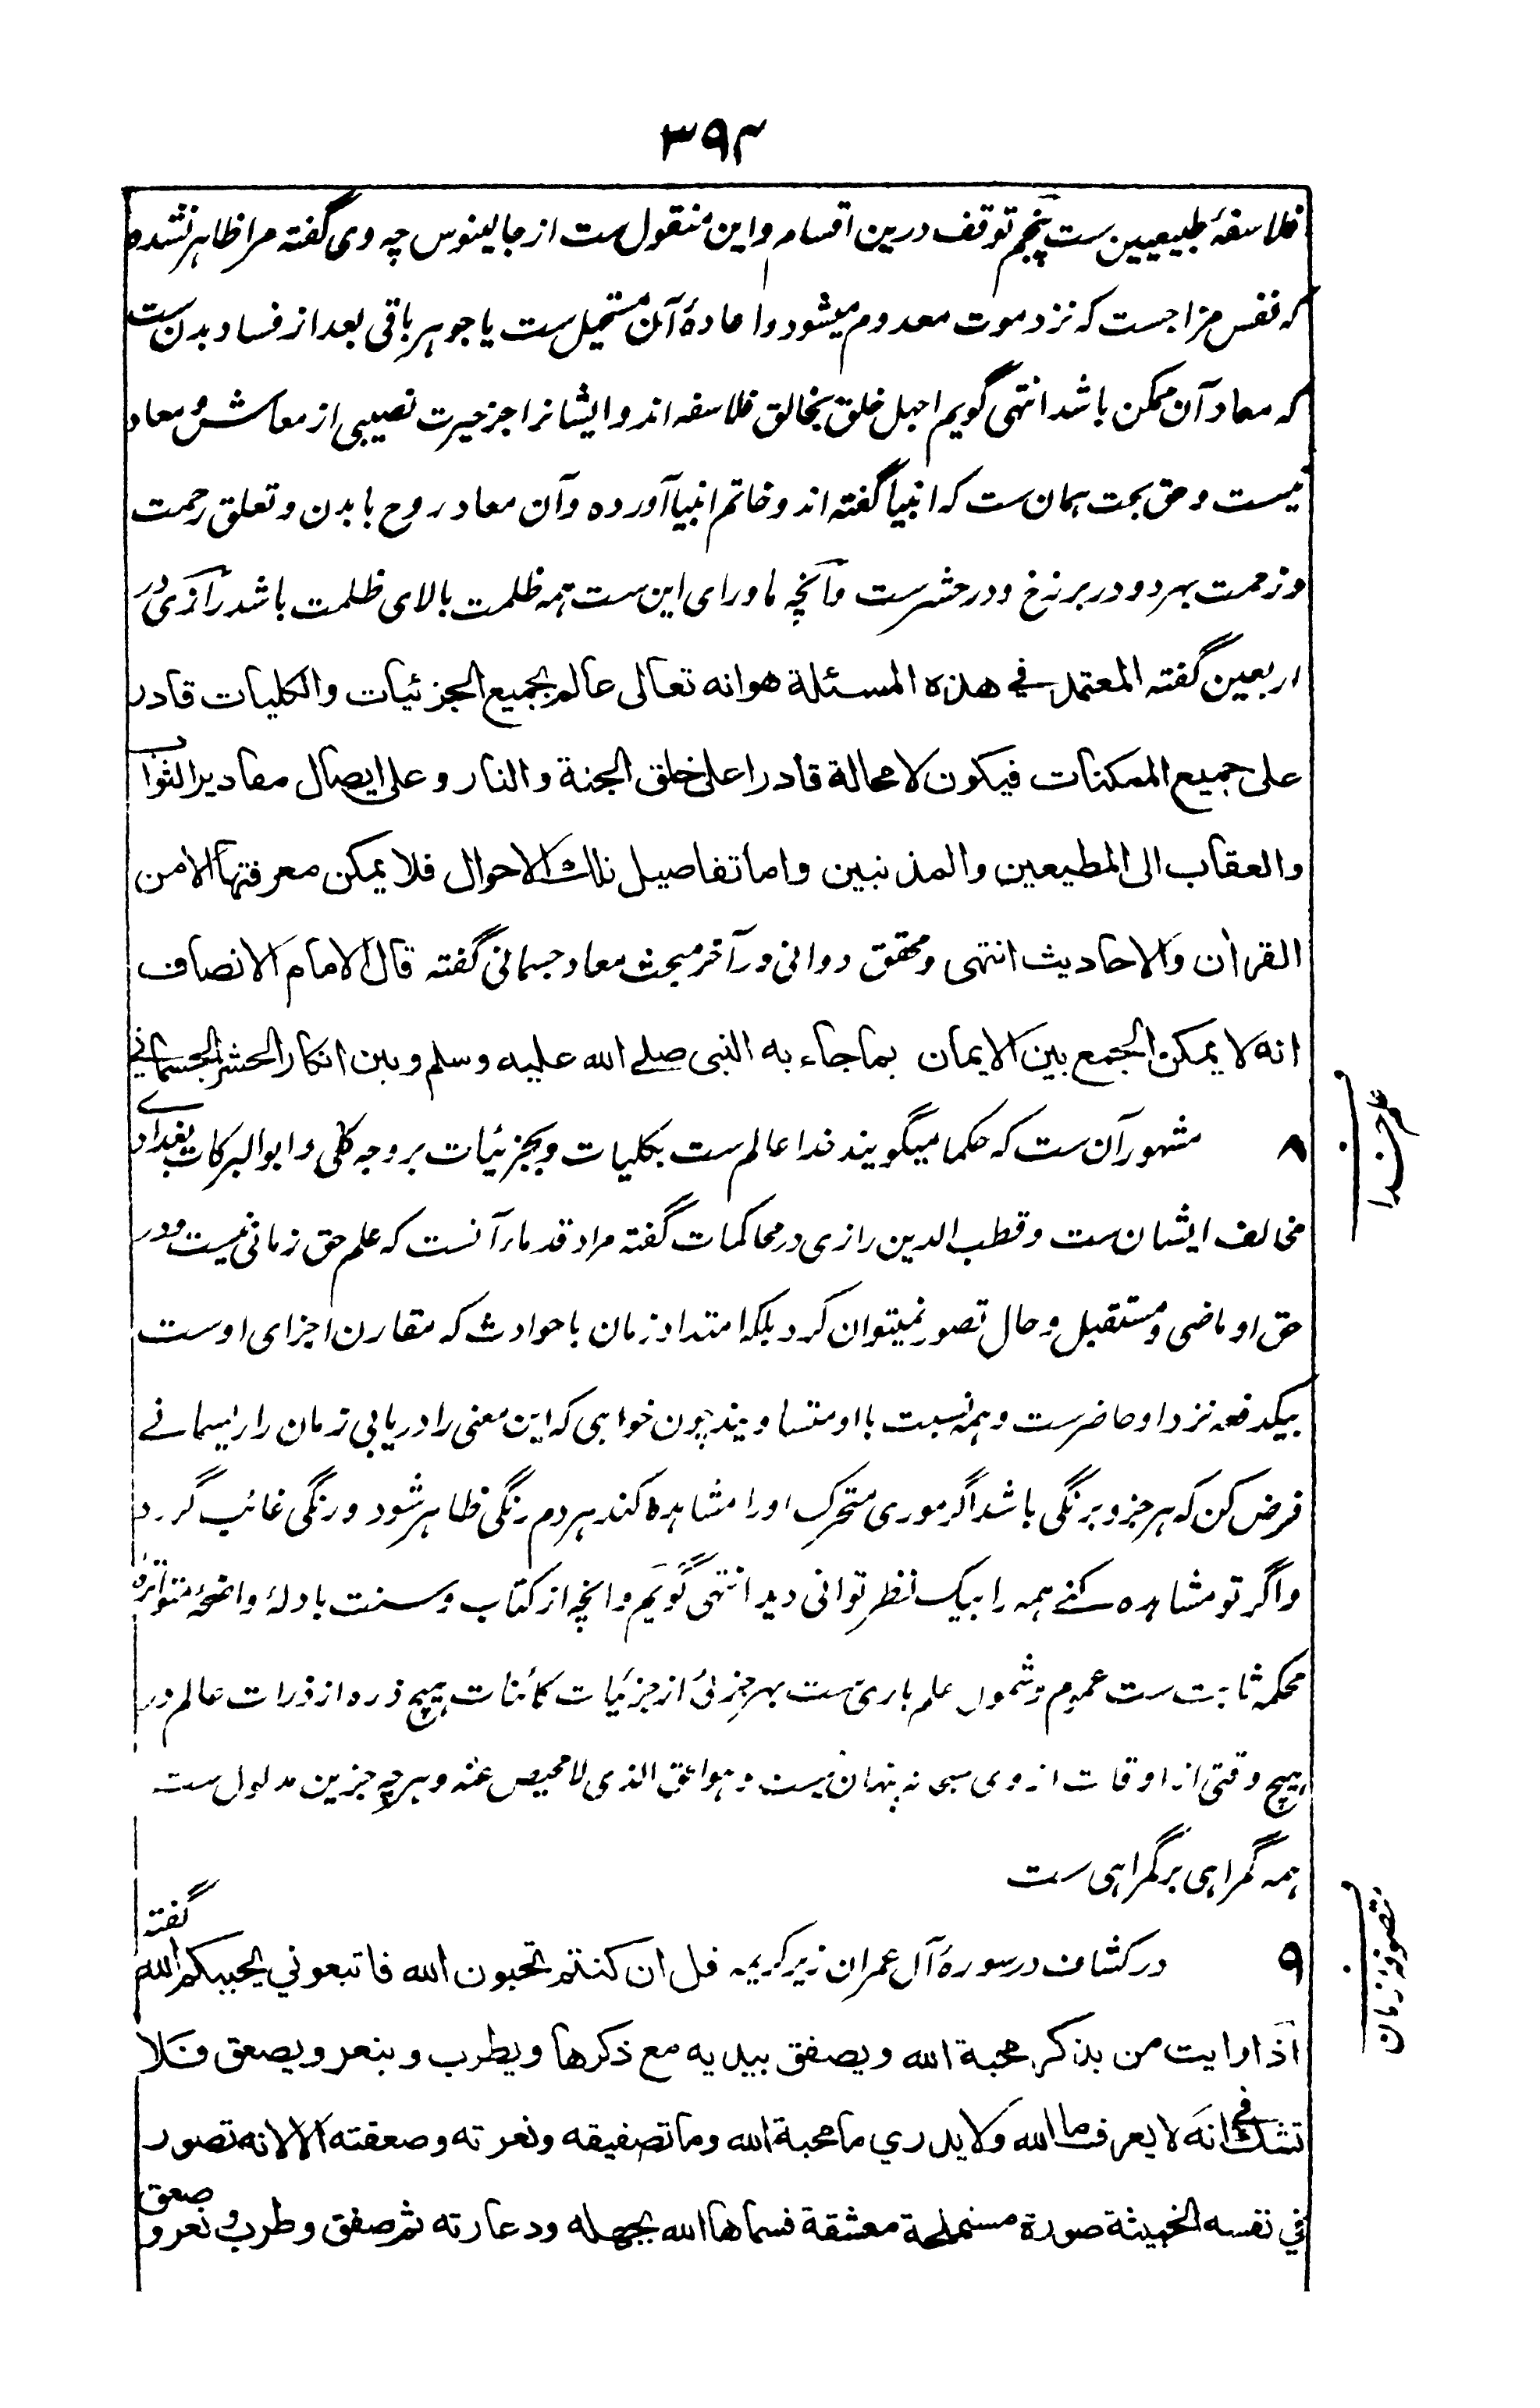 ۳۹۴
فلاسفهٔ طبیعیین ست پنجم توقف درین اقسام و این منقول ست از جالینوس چه وی گفته مرا ظاهر نشده
که نفس مزاجست که نزد موت معدوم میشود و اعادهٔ آن مستحیل ست یا جوهر باقی بعد از فساد بدن ست
که معاد آن ممکن باشد انتهی گویم اجهل خلق بخالق فلاسفه اند و ایشانرا جز حیرت نصیبی از معاش و معاد
نیست و حق بحت همان ست که انبیا گفته اند و خاتم انبیا آورده و آن معاد روح با بدن و تعلق رحمت
و زحمت بهر دو در برزخ و در حشر ست و آنچه ماورای این ست همه ظلمت بالای ظلمت باشد رازی در
اربعین گفته المعتمد في هذه المسئلة هو انه تعالى عالم بجميع الجزئيات والكليات قادر
على جميع الممكنات فيكون لا محالة قادرا على خلق الجنة والنار وعلى ايصال مقادير الثواب
والعقاب الى المطيعين والمذنبين واما تفاصيل تلك الاحوال فلا يمكن معرفتها الا من
القران والاحاديث انتهی و محقق دوانی در آخر مبحث معاد جسمانی گفته قال الامام الانصاف
انه لا يمكن الجمع بين الايمان بما جاء به النبي صلى الله عليه وسلم وبين انكار الحشر الجسماني
علم خدا
۸ مشهور آن ست که حکما میگویند خدا عالم ست بکلیات و بجزئیات بر وجه کلی و ابوالبرکات بغدادی
مخالف ایشان ست و قطب الدین رازی در محاکمات گفته مراد قدماء آنست که علم حق زمانی نیست و در
حق او ماضی و مستقبل و حال تصور نمیتوان کرد بلکه امتداد زمان با حوادث که مقارن اجزای اوست
بیکدفعه نزد او حاضر ست و همه نسبت با او متساویند چون خواهی که این معنی را دریابی زمان را ریسمانے
فرض کن که هر جزو برنگی باشد اگر موری متحرک او را مشاهده کند هر دم رنگی ظاهر شود و رنگی غائب گردد
و اگر تو مشاهده کنے همه را بیک نظر توانی دید انتهی گویم و انچه از کتاب و سنت بادلهٔ واضحهٔ متواترهٔ
محکمه ثابت ست عموم و شمول علم باری ست بهر جزئی از جزئیات کائنات هیچ ذره از ذرات عالم در
هیچ وقتی از اوقات از وی سبحانه پنهان نیست و هو الحق الذی لا محیص عنه و هر چه جز این مدلول ست
همه گمراهی بر گمراهی ست
متصوفهٔ زمان
۹ در کشاف در سورهٔ آل عمران زیر کریمه قل ان كنتم تحبون الله فاتبعوني يحببكم الله گفته
اذا رايت من يذكر محبة الله ويصفق بيديه مع ذكرها ويطرب وينعر ويصعق فلا
تشك في انه لا يعرف ما الله ولا يدري ما محبة الله وما تصفيقه ونعرته وصعقته الا لانه تصور
في نفسه الخبيثة صورة مستملحة معشقة فسماها الله بجهله ودعارته ثم صفق وطرب و نعر و صعق